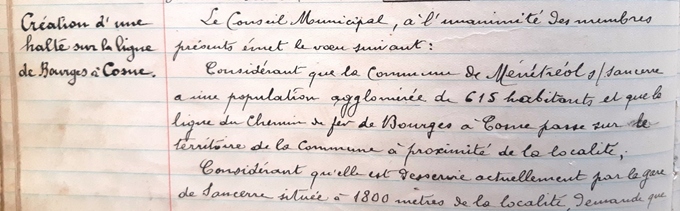 Création d'une
halte sur la ligne
de Bourges à Cosne.
Le Conseil Municipal, à l'unanimité des membres
présents émet le vœu suivant :
Considérant que la Commune de Ménétréol s/Sancerre
a une population agglomérée de 615 habitants et que la
ligne du Chemin de fer de Bourges à Cosne passe sur le
territoire de la Commune à proximité de la localité;
Considérant qu'elle est desservie actuellement par la gare
de Sancerre située à 1800 mètres de la localité, demande que